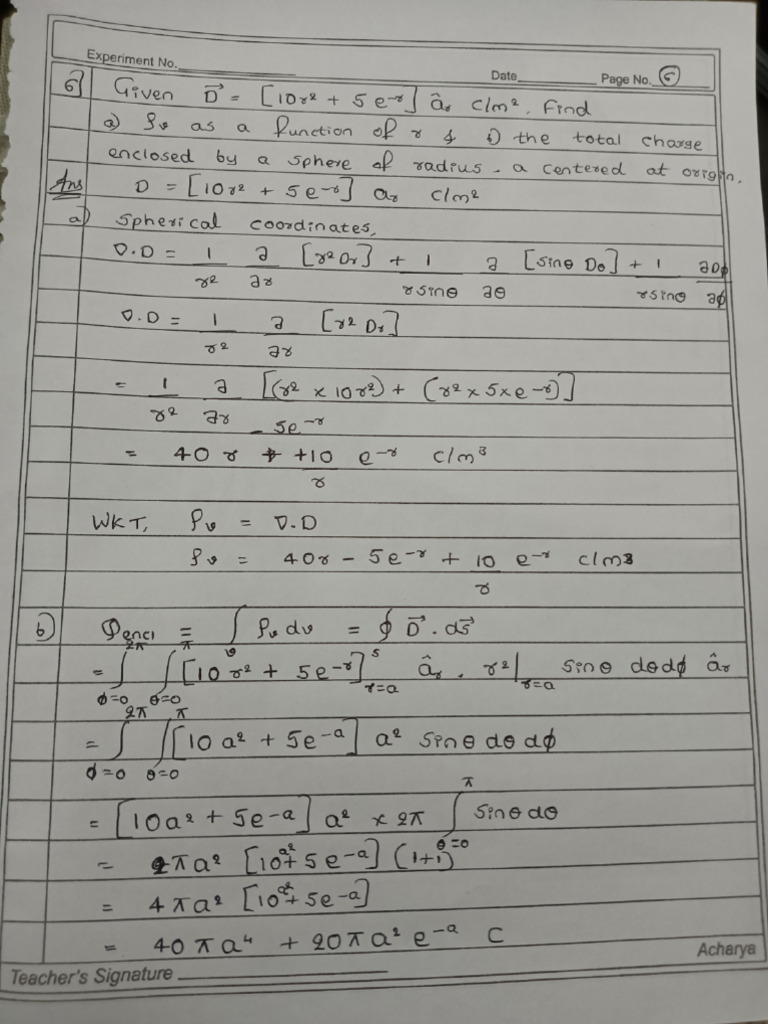 Experiment No.
Date Page No. 6
6) Given D⃗ = [10r² + 5e⁻ʳ] âᵣ c/m². Find
a) ρᵥ as a function of r & i) the total charge
enclosed by a sphere of radius. a centered at origin.
Ans D = [10r² + 5e⁻ʳ] aᵣ c/m²
a) Spherical coordinates,
∇.D = 1/r² ∂/∂r [r² Dr] + 1/(r sinθ) ∂/∂θ [sinθ Dθ] + 1/(r sinθ) ∂Dϕ/∂ϕ
∇.D = 1/r² ∂/∂r [r² Dr]
= 1/r² ∂/∂r [(r² × 10r²) + (r² × 5 × e⁻ʳ)]
- 5e⁻ʳ
= 40 r + 10/r e⁻ʳ c/m³
WKT, ρᵥ = ∇.D
ρᵥ = 40r - 5e⁻ʳ + 10/r e⁻ʳ c/m3
b) Qencl = ∫ᵥ ρᵥ dv = ∮ D⃗ . ds⃗
= ∫_{ϕ=0}^{2π} ∫_{θ=0}^{π} [10r² + 5e⁻ʳ]^{s}_{r=a} âᵣ . r²|_{r=a} sinθ dθ dϕ âᵣ
= ∫_{ϕ=0}^{2π} ∫_{θ=0}^{π} [10a² + 5e⁻ᵃ] a² sinθ dθ dϕ
= [10a² + 5e⁻ᵃ] a² × 2π ∫_{θ=0}^{π} sinθ dθ
= 2πa² [10a² + 5e⁻ᵃ] (1+1)
= 4πa² [10a² + 5e⁻ᵃ]
= 40πa⁴ + 20πa² e⁻ᵃ C
Acharya
Teacher's Signature